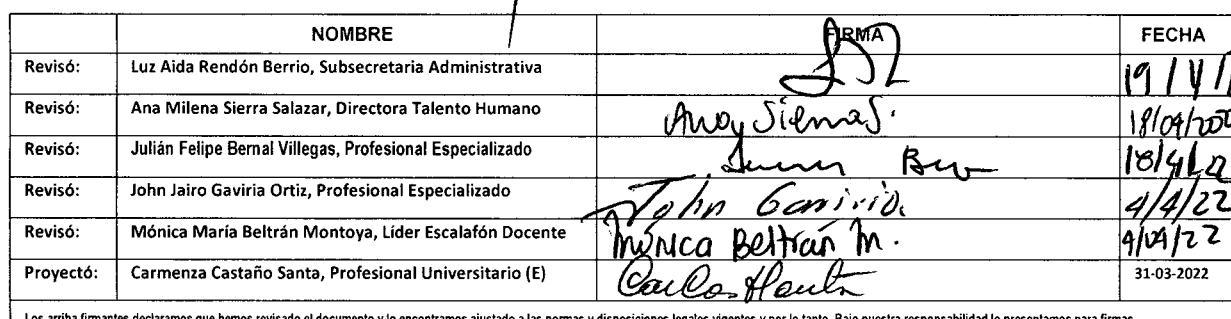 NOMBRE FIRMA FECHA
Revisó: Luz Aida Rendón Berrio, Subsecretaria Administrativa 19/
Revisó: Ana Milena Sierra Salazar, Directora Talento Humano Ana Sierra S. 18/04/
Revisó: Julián Felipe Bernal Villegas, Profesional Especializado 18/4/22
Revisó: John Jairo Gaviria Ortiz, Profesional Especializado John Gaviria. 4/4/22
Revisó: Mónica María Beltrán Montoya, Líder Escalafón Docente Mónica Beltrán M. 4/04/22
Proyectó: Carmenza Castaño Santa, Profesional Universitario (E) 31-03-2022
Los arriba firmantes declaramos que hemos revisado el documento y lo encontramos ajustado a las normas y disposiciones legales vigentes y por lo tanto, Bajo nuestra responsabilidad lo presentamos para firmas